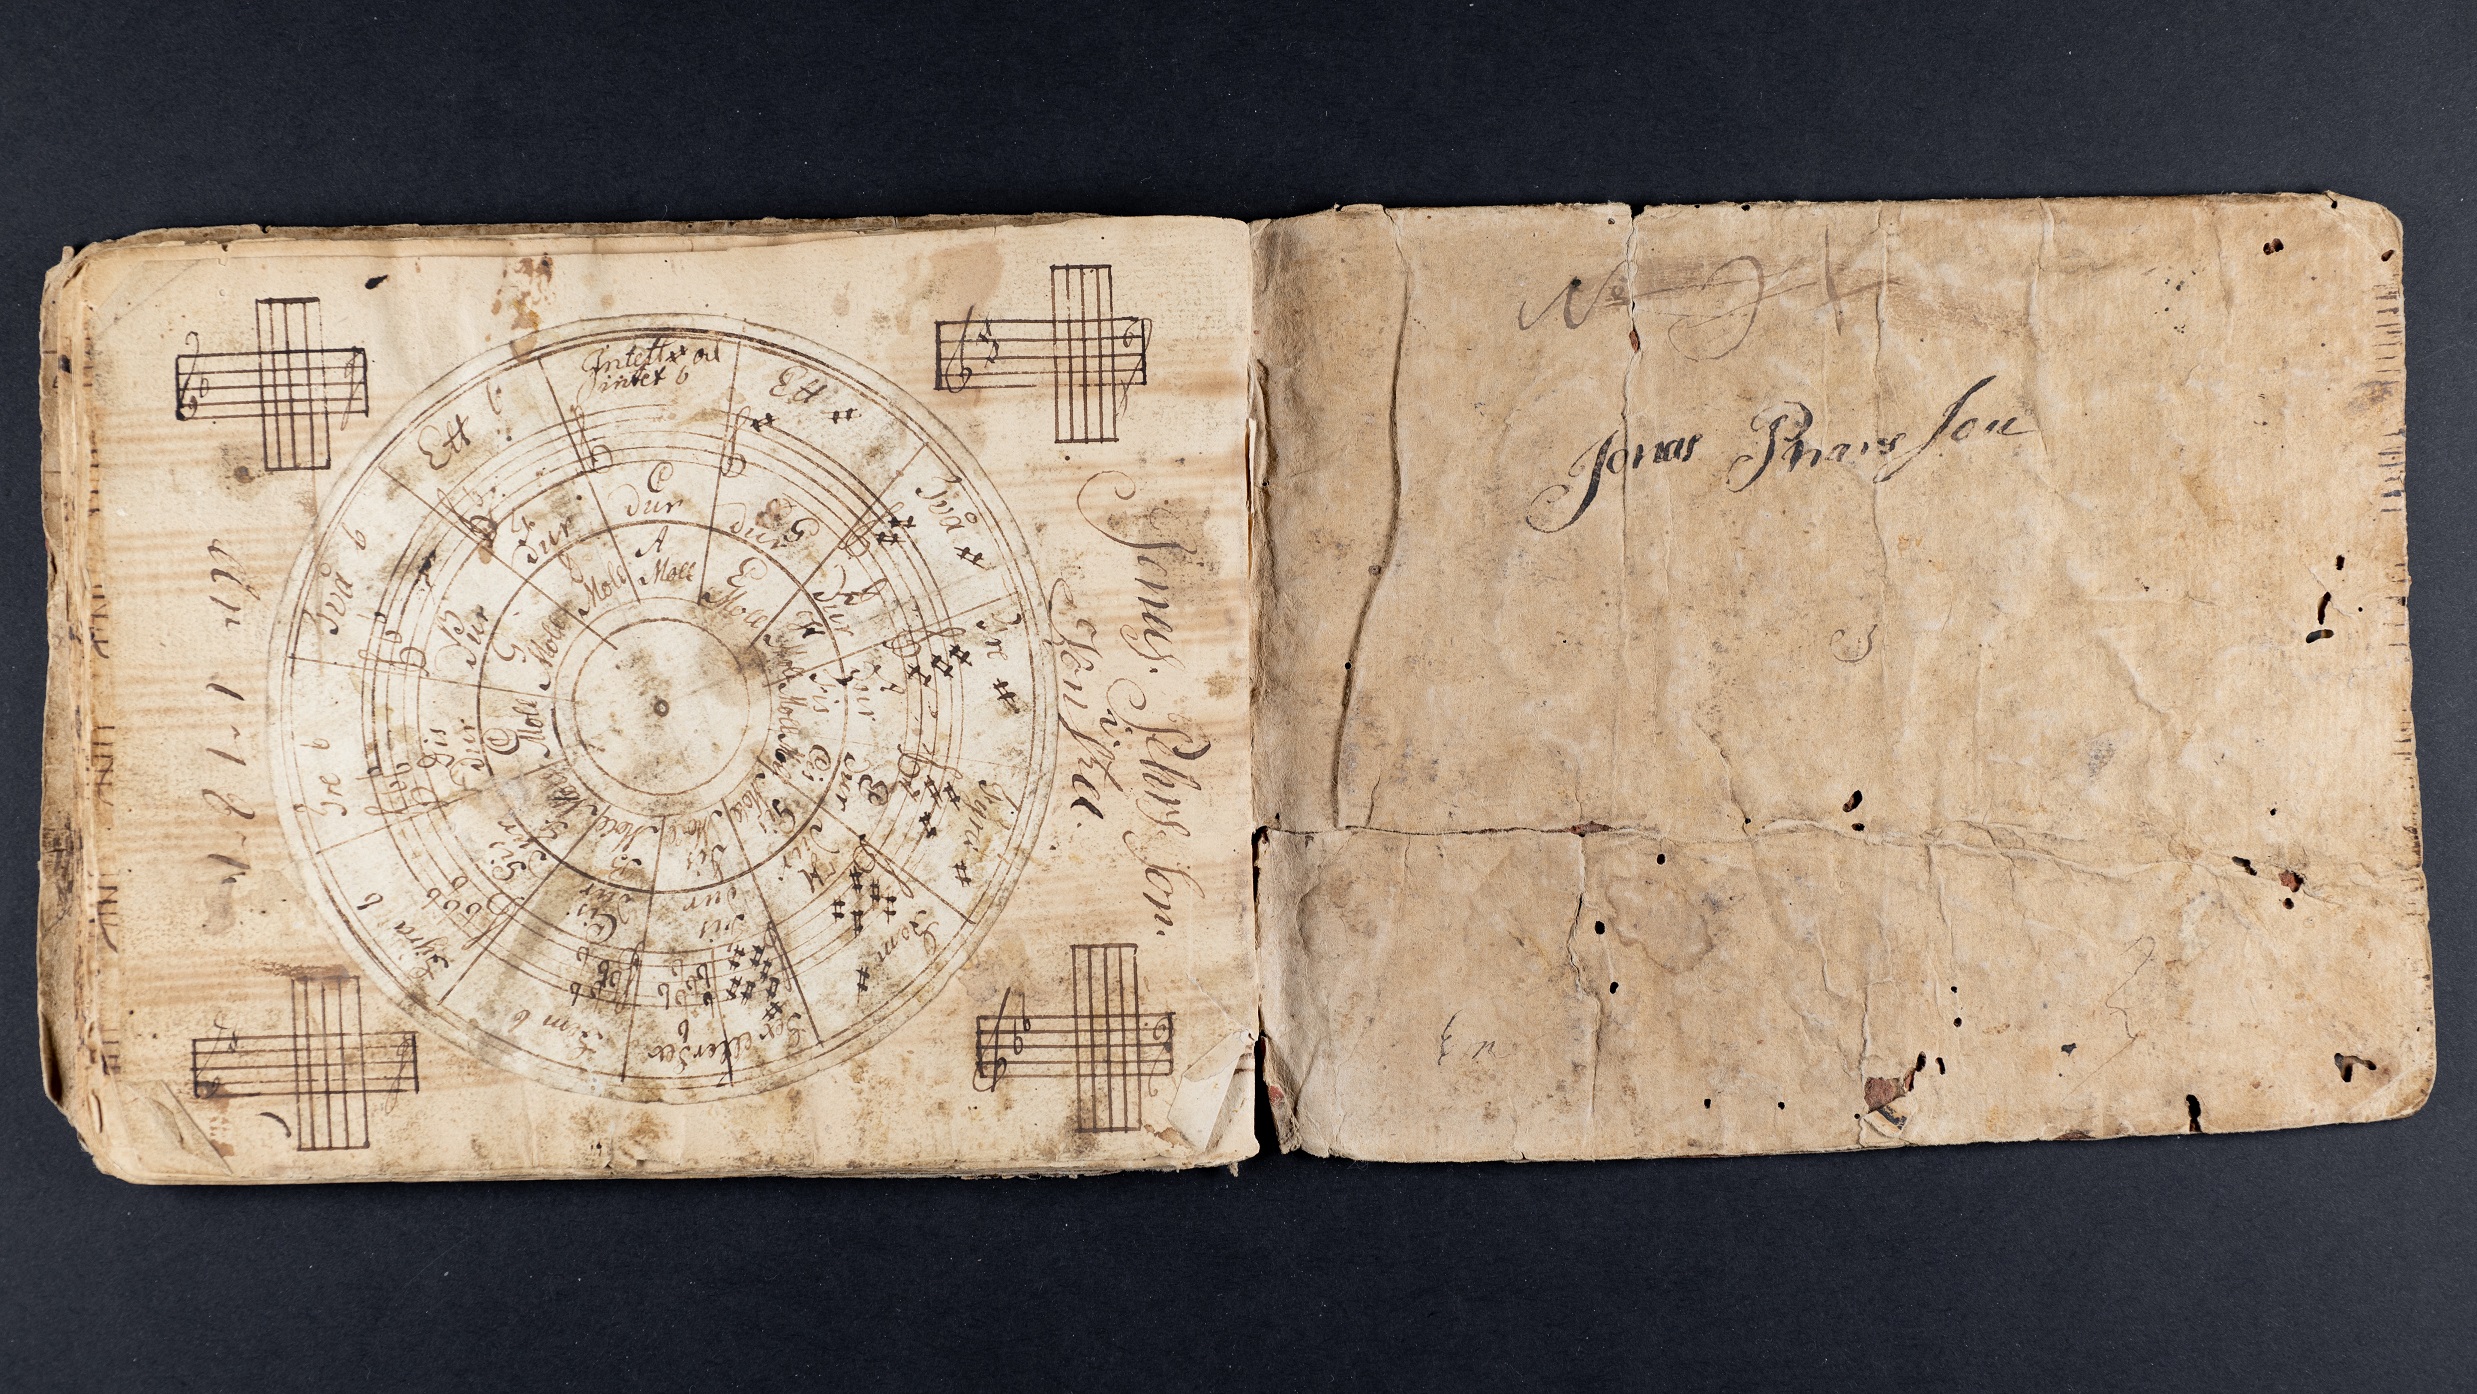 Intet # ock
intet b
Ett #
Två #
Tre #
Fyra #
Fem #
Sex eller Sex
b
Fem b
Fyra b
Tre b
Två b
Ett b
C
dur
G
dur
D
dur
A
dur
E
dur
H
dur
Fis
dur
Cis
dur
Gis
dur
Dis
dur
B
dur
F
dur
A
Moll
E
Moll
H
Moll
Fis
Moll
Cis
Moll
Gis
Moll
Dis
Moll
B
Moll
F
Moll
C
Moll
G
Moll
D
Moll
Jonas Pehrs Son
i
År
No
Jonas Pehrs Son